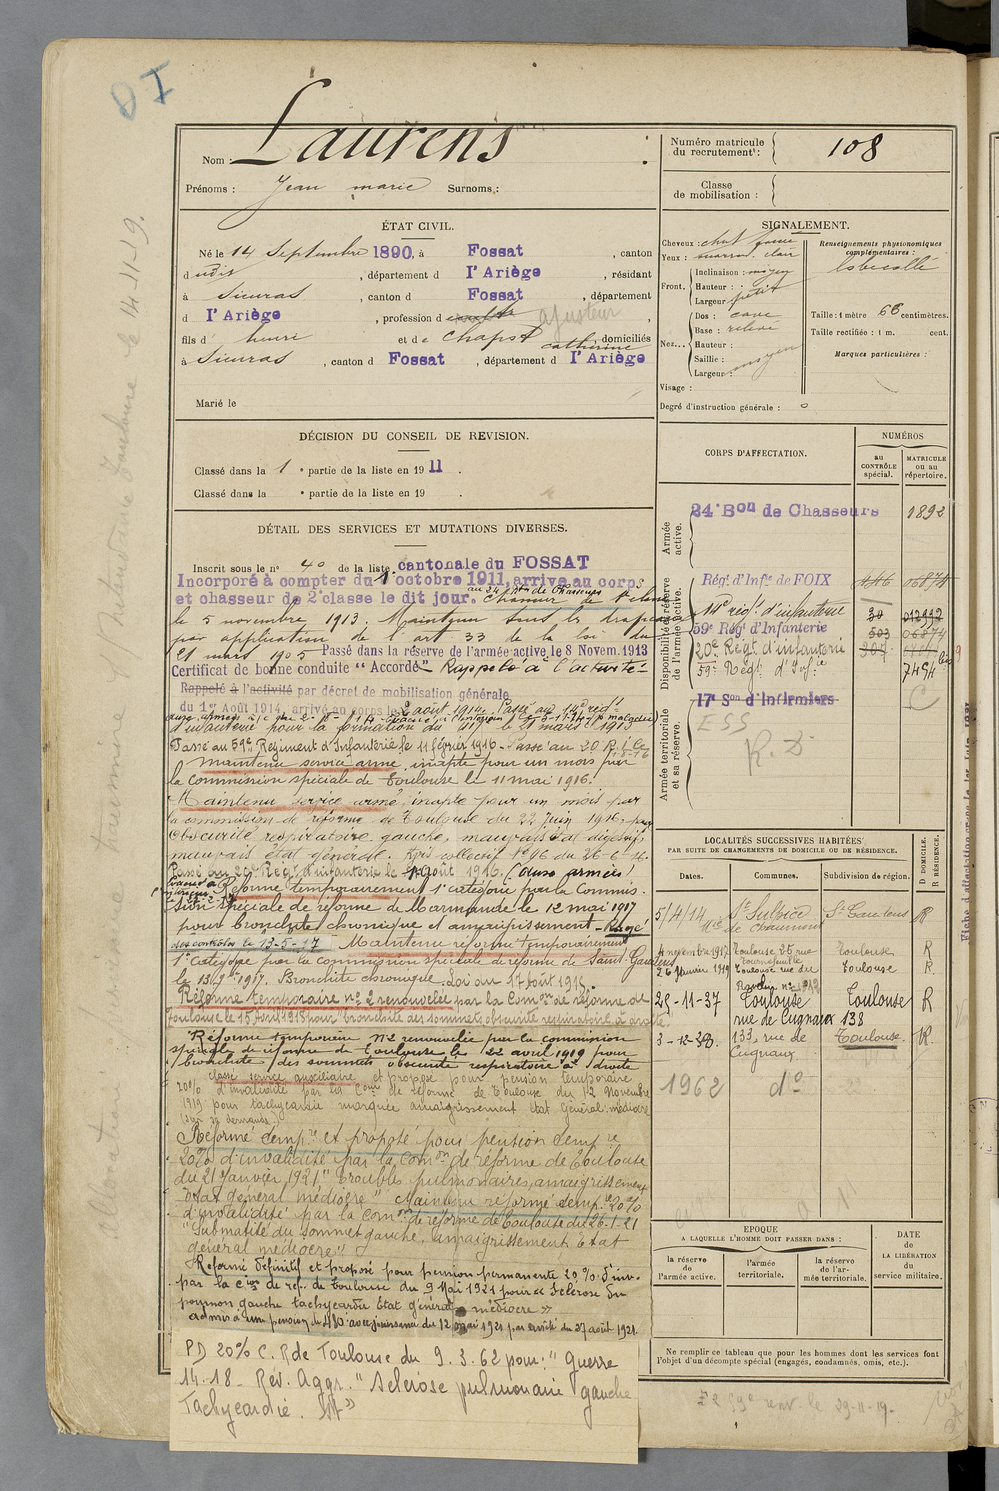 D I
Laurens
Nom :
Prénoms : Jean marie Surnoms :
ÉTAT CIVIL.
Né le 14 Septembre 1890, à Fossat , canton
d udit , département d l'Ariège , résidant
à Sieuras , canton d Fossat , département
d l'Ariège , profession d ajusteur ,
fils d' henri et de Chapst catherine domiciliés
à Sieuras , canton d Fossat , département d l'Ariège
Marié le
DÉCISION DU CONSEIL DE REVISION.
Classé dans la 1e partie de la liste en 1911 .
Classé dans la e partie de la liste en 19 .
DÉTAIL DES SERVICES ET MUTATIONS DIVERSES.
Inscrit sous le n° 40 de la liste cantonale du FOSSAT
Incorporé à compter du 1 octobre 1911, arrive au corps
au 24 Bon de Chasseurs
et chasseur de 2e classe le dit jour. Chasseur de 1e classe
le 5 novembre 1913. Maintenu sous les drapeaux
par application de l'art 33 de la loi du
21 mars 1905 Passé dans la réserve de l'armée active, le 8 Novem. 1913
Certificat de bonne conduite "Accordé" Rappelé à l'activité
Rappelé à l'activité par décret de mobilisation générale
du 1er Août 1914, arrivé au corps le 2 août 1914. Passé au 14e régt
d'infanterie pour la formation du le 21 mars 1915
Passé au 59e Régiment d'Infanterie le 11 février 1916 - Passé au 20 R.I. le
maintenu service armé, inapte pour un mois par
la commission spéciale de Toulouse le 11 mai 1916.
Maintenu service armé inapte pour un mois par
la commission de réforme de Toulouse du 22 Juin 1916, pour
Obscurité respiratoire gauche, mauvais état digestif,
mauvais état général. Avis collectif N° 46 du 26-6-16.
Passé au 59e Régt d'infanterie le août 1916. (aux armées)
Réforme temporairement 1e catégorie par la Commis-
sion spéciale de réforme de Marmande le 12 mai 1917
pour bronchite chronique et amaigrissement - Rayé
des contrôles le 13-5-17 Maintenu réformé temporairement
1e catégorie par la commission spéciale de réforme de Saint-Gaudens
le 13 1917. Bronchite chronique. Loi du 17 août 1915.
Réforme temporaire n° 2 renouvelée par la Comon de réforme de
Toulouse le 15 Avril 1918 pour bronchite des sommets, obscurité respiratoire à droite.
Réforme temporaire N°2 renouvelée par la commission
spéciale de réforme de Toulouse le 22 avril 1919 pour
bronchite des sommets obscurité respiratoire à droite
classé service auxiliaire et proposé pour pension temporaire
20% d'invalidité par la Comon de réforme de Toulouse du 12 Novembre
1919 pour tachycardie marquée amaigrissement état général médiocre
(sur sa demande)
Réformé tempre et proposé pour pension tempre
20% d'invalidité par la Comon de réforme de Toulouse
du 21 Janvier 1921 "Troubles pulmonaires, amaigrissement
état général médiocre" Maintenu réformé tempre 20%
d'invalidité par la Comon de réforme de Toulouse du 26.1.21
"Submatité du sommet gauche, amaigrissement Etat
général médiocre"
Réformé Définitif et proposé pour pension permanente 20% d'inv.
par la Con de ref. de Toulouse du 9 Mai 1921 pour "Sclérose du
poumon gauche tachycardie Etat général médiocre"
admis à une pension de 480f avec jouissance du 12 mai 1921 par arrêté du 27 août 1921.
PD 20% C. R de Toulouse du 9.3.62 pour : "Guerre
14.18 - Rev. Aggr. "Sclérose pulmonaire gauche
Tachycardie.
Numéro matricule
du recrutement : 108
Classe
de mobilisation :
SIGNALEMENT.
Cheveux : chat foncé
Yeux : marron clair
Front. Inclinaison : moyen
Hauteur :
Largeur : petit
Nez... Dos : cave
Base : relevé
Hauteur :
Saillie :
Largeur : moyen
Visage :
Degré d'instruction générale :
Renseignements physionomiques
complémentaires :
lobe collé
Taille : 1 mètre 66 centimètres.
Taille rectifiée : 1 m. cent.
Marques particulières :
CORPS D'AFFECTATION.
NUMÉROS
au
CONTRÔLE
spécial.
MATRICULE
ou au
répertoire.
Armée
active.
24e Bon de Chasseurs 1892
Disponibilité et réserve
de l'armée active.
Régt d'Infie de FOIX 446 06874
14e régt d'infanterie 30 012992
59e Régt d'Infanterie 503 06874
20e Régt d'infanterie
59e Régt d'Infie 7494
Armée territoriale
et sa réserve.
17e Son d'Infirmiers
ESS
R. D. C
LOCALITÉS SUCCESSIVES HABITÉES
PAR SUITE DE CHANGEMENTS DE DOMICILE OU DE RÉSIDENCE.
Dates. Communes. Subdivision de région.
D DOMICILE.
R RÉSIDENCE.
5/4/14 St Sulpice St Gaudens R
4 novembre 1917 Toulouse 26 rue Tournefeuille Toulouse R
26 février 1919 Toulouse rue du Toulouse R
29-11-37 Toulouse Toulouse R
rue de Cugnaux 138
3-12-38. 133, rue de Toulouse R
Cugnaux
1962 do
EPOQUE
A LAQUELLE L'HOMME DOIT PASSER DANS :
la réserve
de
l'armée active.
l'armée
territoriale.
la réserve
de l'ar-
mée territoriale.
DATE
de
LA LIBÉRATION
du
service militaire.
Ne remplir ce tableau que pour les hommes dont les services font
l'objet d'un décompte spécial (engagés, condamnés, omis, etc.).
59e renv. le 29-11-19.